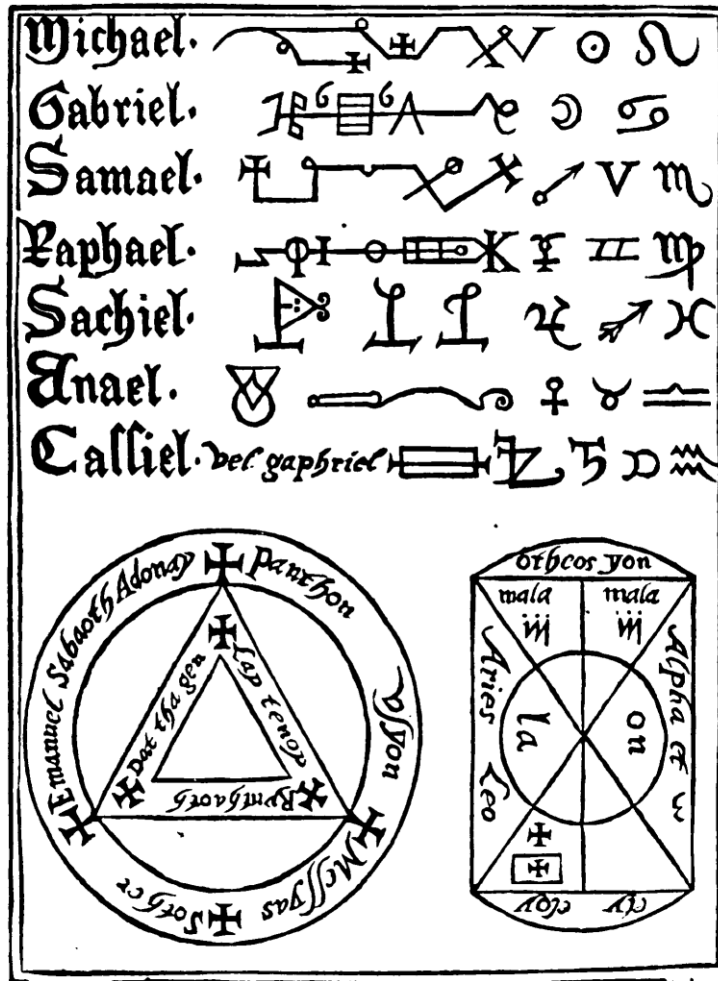 Michael. ☉ ♌
Gabriel. ☽ ♋
Samael. ♂ V ♏
Raphael. ☿ ♊ ♍
Sachiel. ♃ ♐ ♓
Anael. ♀ ♉ ♎
Caſſiel. vel gaphriel ♄ ♑ ♒
Emanuel Sabaoth Adonay ✠ Panthon
Vſyon
✠ Meſſyas ✠ Sother ✠
Dat tha gen
Lap tenop
Rynthaoth
othcos yon
mala mala
Aries Leo
Alpha et ω
la on
eloy ely